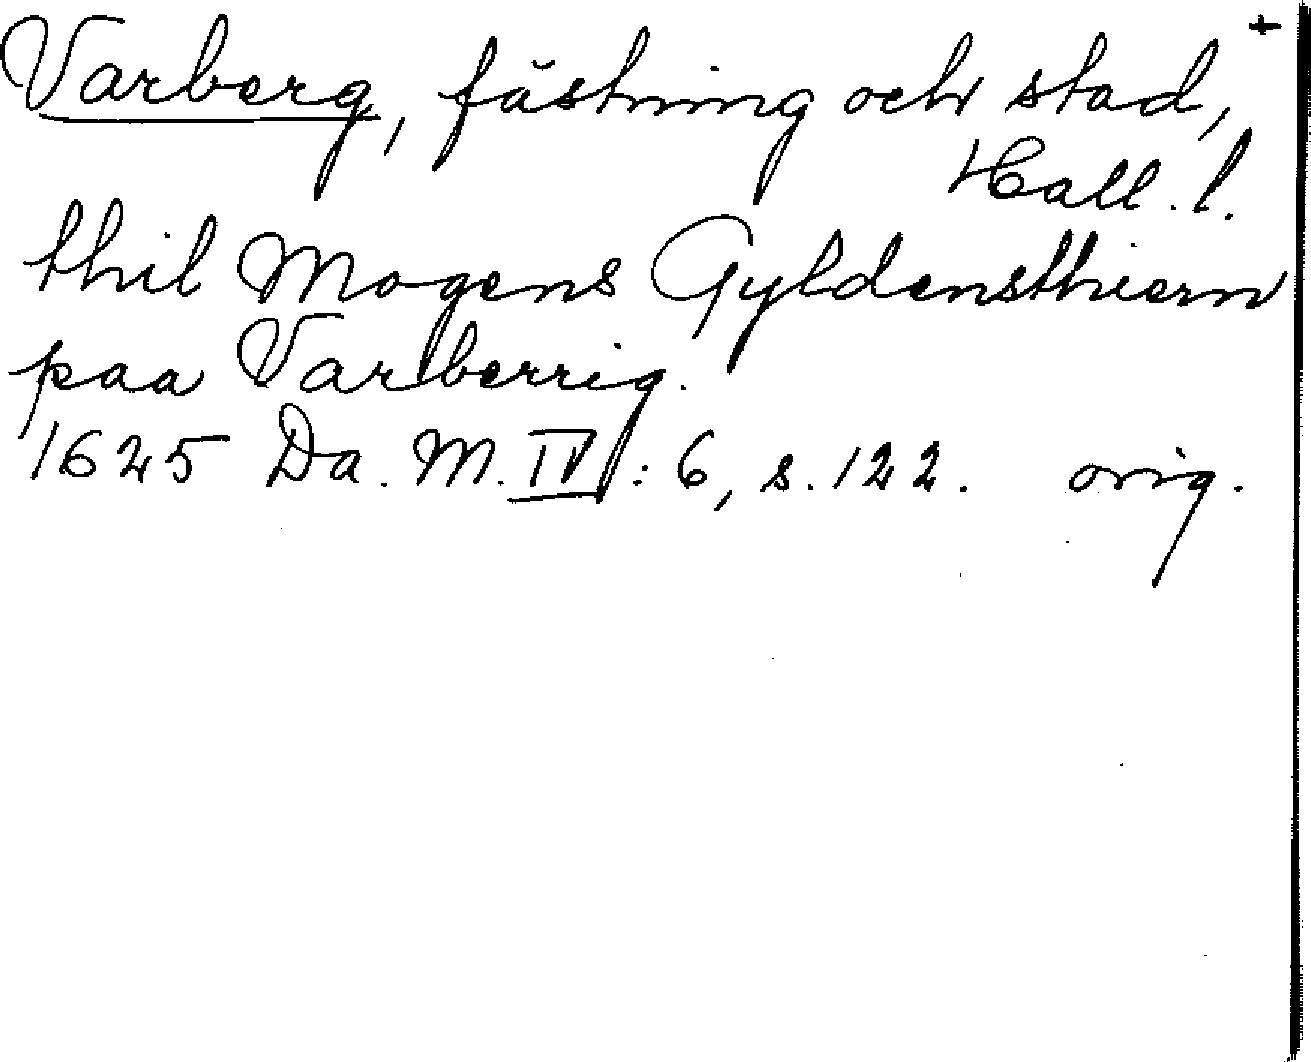 Varberg, fästning och stad, +
Hall. l.
thil Mogens Gyldensthiern
paa Varberrig.
1625 Da. M. IV : 6, s. 122. orig.